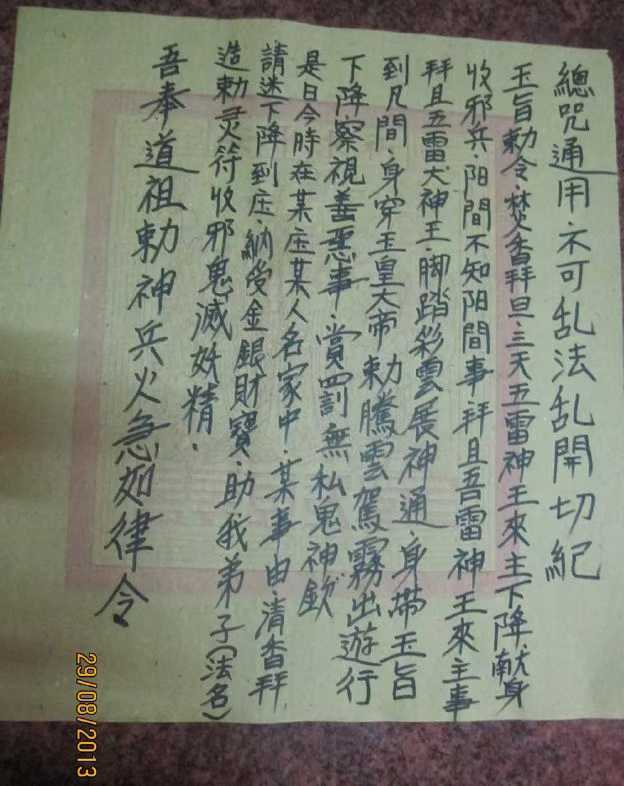 總咒通用·不可乱法乱開切紀
玉旨勅令·焚香拜旦·三天五雷神王來主下降献身
收邪兵·阳間不知阳間事拜且吾雷神王來主事
拜且五雷大神王·脚踏彩雲展神通·身帶玉旨
到凡間·身穿玉皇大帝勅騰雲駕霧出遊行
下降察視善悪事·賞罰無私鬼神欽
是日今時在某庄某人名家中·某事由·清香拜
請迷下降到庄·納受金銀財寶·助我弟子(法名)
造勅灵符收邪鬼滅妖精·
吾奉道祖勅神兵火急如律令
29/08/2013